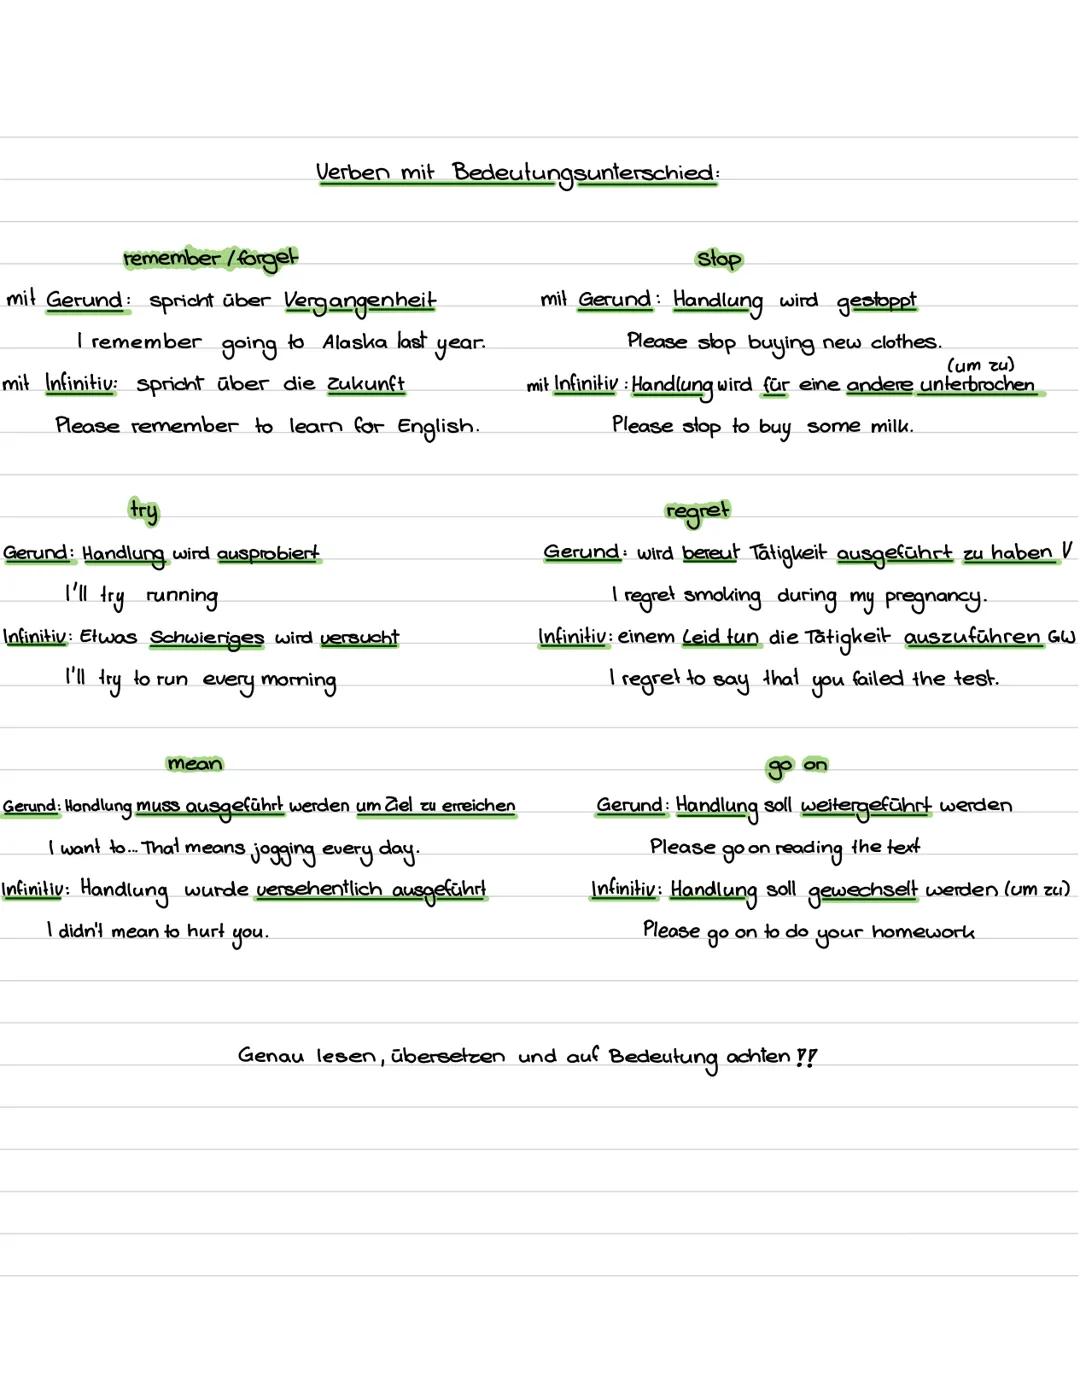 Verben mit Bedeutungsunterschied:
remember / forget
mit Gerund: spricht über Vergangenheit
I remember going to Alaska last year.
mit Infinitiv: spricht über die Zukunft
Please remember to learn for English.
stop
mit Gerund: Handlung wird gestoppt
Please stop buying new clothes.
(um zu)
mit Infinitiv: Handlung wird für eine andere unterbrochen
Please stop to buy some milk.
try
Gerund: Handlung wird ausprobiert
I'll try running
Infinitiv: Etwas Schwieriges wird versucht
I'll try to run every morning
regret
Gerund: wird bereut Tätigkeit ausgeführt zu haben V
I regret smoking during my pregnancy.
Infinitiv: einem Leid tun die Tätigkeit auszuführen GW
I regret to say that you failed the test.
mean
Gerund: Handlung muss ausgeführt werden um Ziel zu erreichen
I want to... That means jogging every day.
Infinitiv: Handlung wurde versehentlich ausgeführt
I didn't mean to hurt you.
go on
Gerund: Handlung soll weitergeführt werden
Please go on reading the text
Infinitiv: Handlung soll gewechselt werden (um zu)
Please go on to do your homework
Genau lesen, übersetzen und auf Bedeutung achten !!